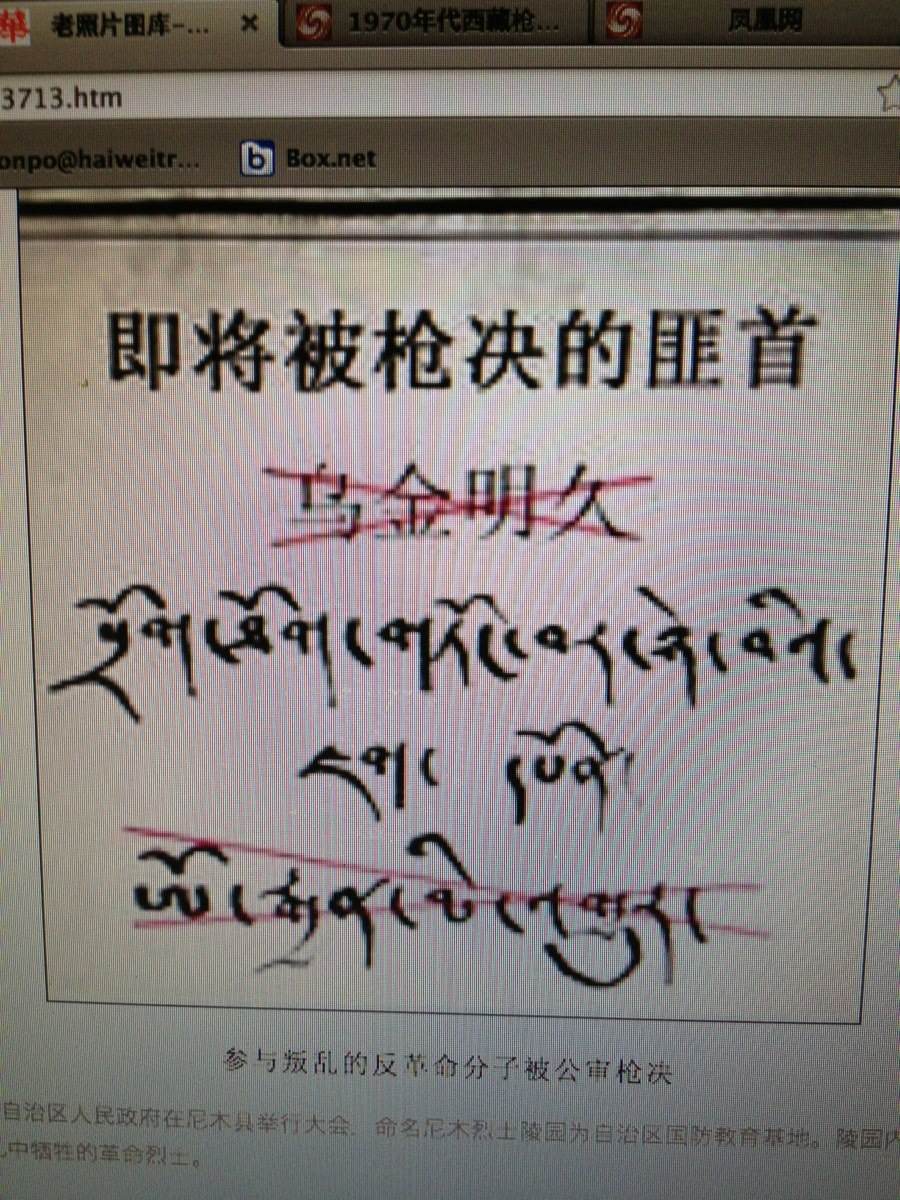 老照片图库-... × 1970年代西藏枪... 凤凰网
3713.htm
onpo@haiweitr... Box.net
即将被枪决的匪首
乌金明久
སྲོག་ཐོག་གཏོང་བར་ཉེ་བའི་
ཇག་ དཔོན་
ཨོ་རྒྱན་མི་འགྱུར་
参与叛乱的反革命分子被公审枪决
自治区人民政府在尼木县举行大会，命名尼木烈士陵园为自治区国防教育基地。陵园内
中牺牲的革命烈士。